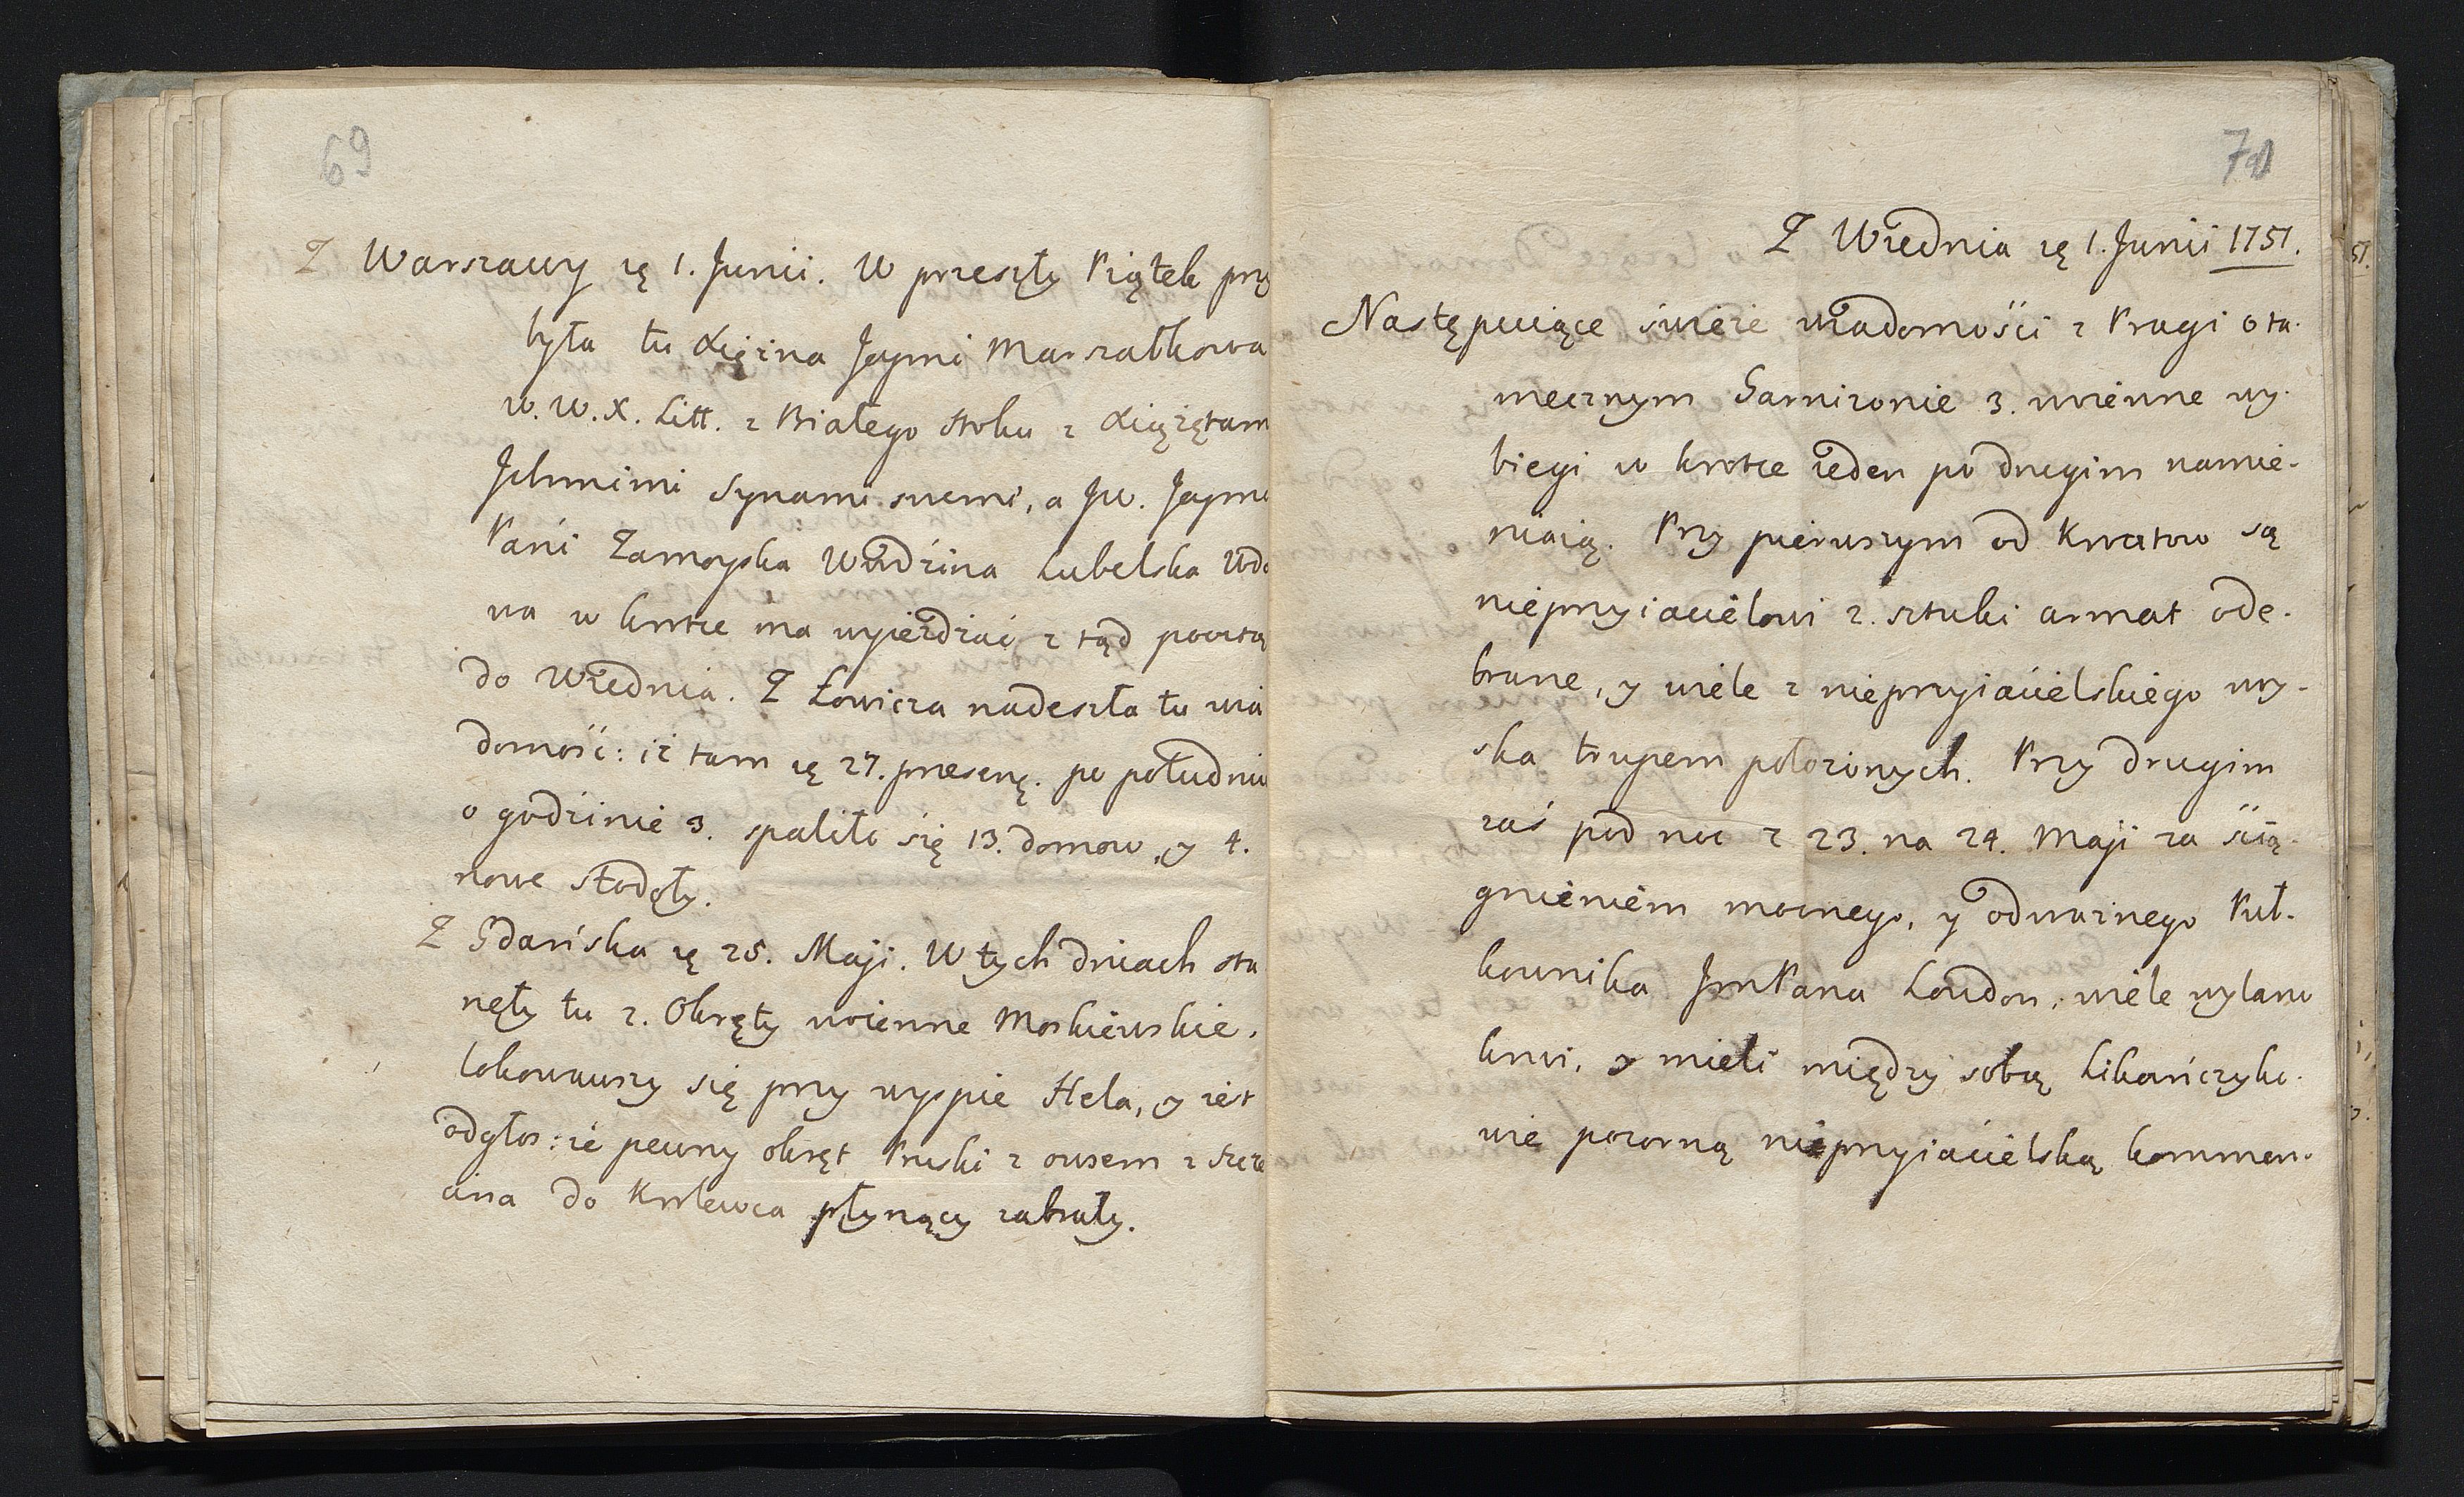 69
Z Warszawy rę 1. Junii. W przeszły Piątek przy
była tu Xiężna Jeymć Marszałkowa
W. W. X. Litt. z Białego Stoku z Xiążętam
Jchmćmi Synami swemi, a JW. Jeymć
Pani Zamoyska Wdzina Lubelska Wdo
wa w krotce ma wyieżdżać z tąd pocztą
do Wiednia. Z Łowicza nadeszła tu wia
domość: iż tam rę 27. przeszłę. po południu
o godzinie 3. spaliło się 13. domow, y 4.
nowe stodoły.
Z Gdańska rę 25. Maji. W tych dniach sta
nęły tu 2. Okręty woienne Moskiewskie.
lokowawszy się przy wyspie Hela, y iest
odgłos: że pewny okręt Pruski z owsem z Szcze
cina do Krolewca płynący zabrały.
70
Z Wiednia rę 1. Junii 1757.
Następuiące świeże wiadomości z Pragi o ta-
mecznym Garnizonie 3. woienne wy-
biegi w krotce ieden po drugim namie-
niaią. Przy pierwszym od Kroatow są
nieprzyiacielowi 2. sztuki armat ode-
brane, y wiele z nieprzyiacielskiego woy-
ska trupem położonych. Przy drugim
zaś pod noc z 23. na 24. Maji za ścią-
gnieniem mocnego, y odważnego Puł-
kownika JmPana Loudon, wiele wylano
krwi, y mieli między sobą Likańczyko-
wie pozorną nieprzyiacielską kommen-
57.